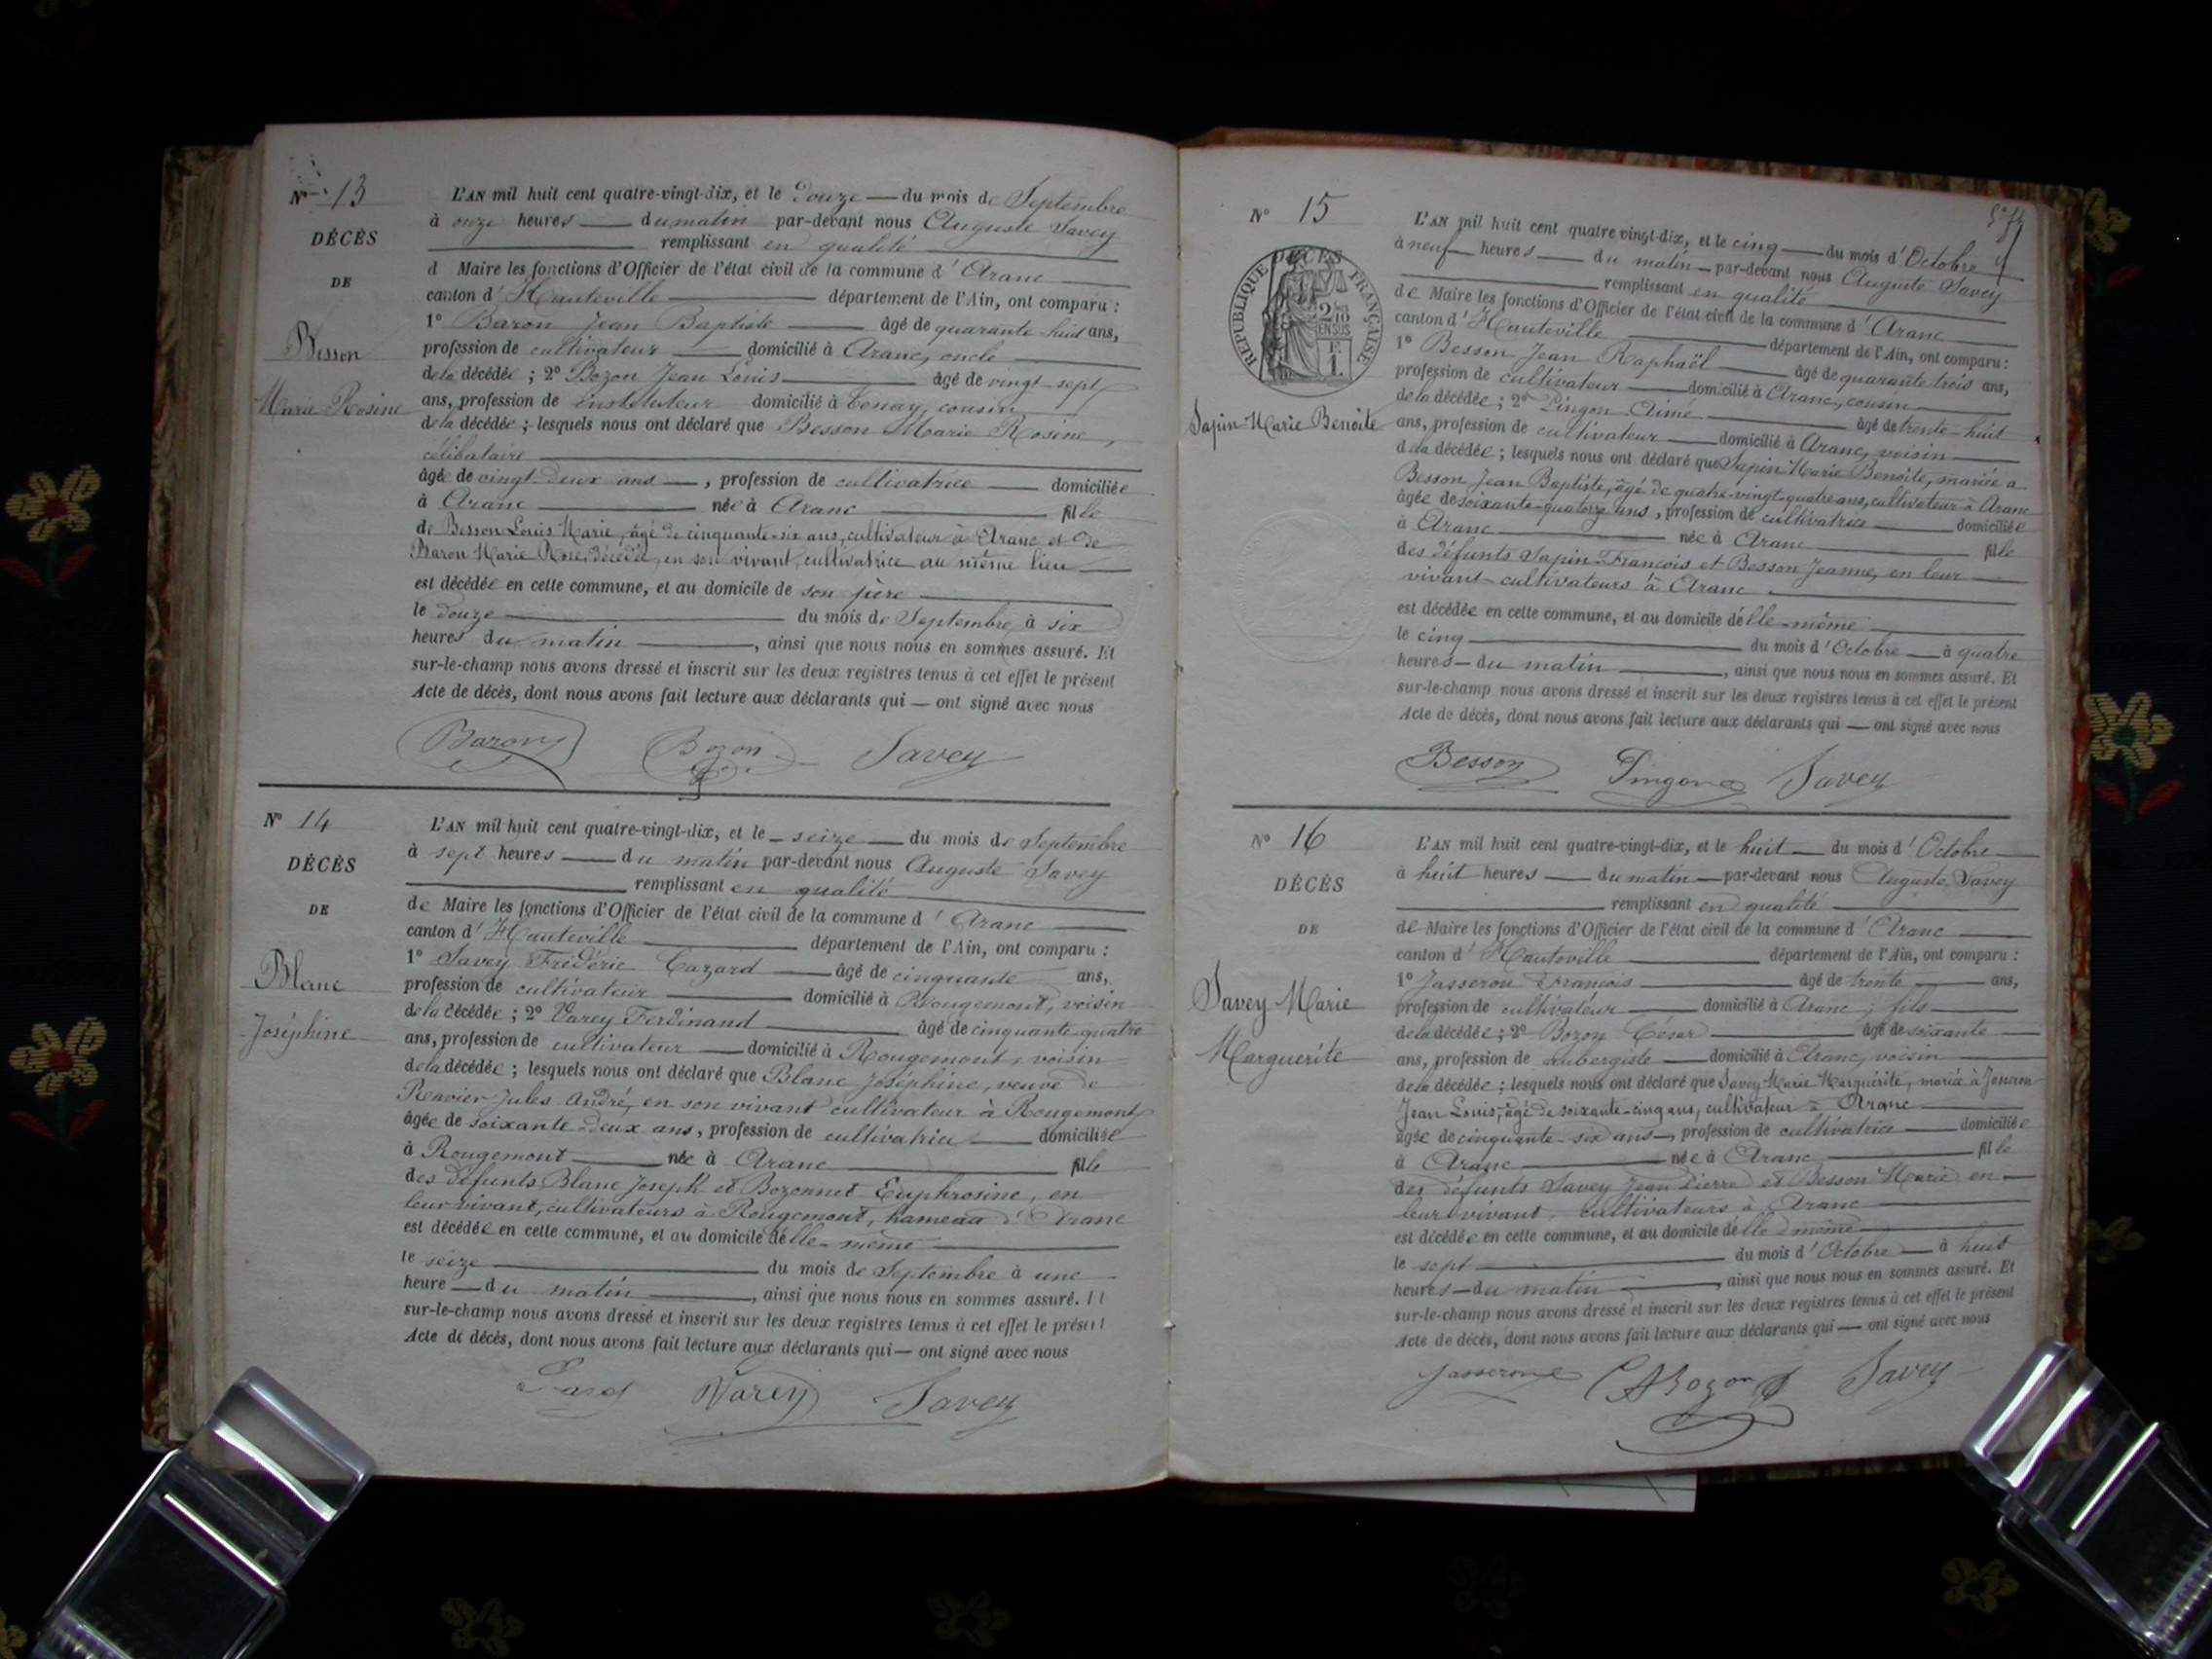 N° 13
DÉCÈS
DE
Besson
Marie Rosine
L'AN mil huit cent quatre-vingt-dix, et le douze — du mois de Septembre
à onze heures — du matin par-devant nous Auguste Savey
remplissant en qualité
d Maire les fonctions d'Officier de l'état civil de la commune d'Aranc
canton d'Hauteville — département de l'Ain, ont comparu :
1° Baron Jean Baptiste — âgé de quarante-huit ans,
profession de cultivateur — domicilié à Aranc, oncle
de la décédée ; 2° Bozon Jean Louis — âgé de vingt-sept
ans, profession de instituteur domicilié à Tenay, cousin
de la décédée ; lesquels nous ont déclaré que Besson Marie Rosine,
célibataire
âgée de vingt-deux ans —, profession de cultivatrice — domiciliée
à Aranc — née à Aranc — fille
de Besson Louis Marie, âgé de cinquante-six ans, cultivateur à Aranc et de
Baron Marie Rose, décédée, en son vivant, cultivatrice au même lieu —
est décédée en cette commune, et au domicile de son père
le douze — du mois de Septembre à six
heures du matin —, ainsi que nous nous en sommes assuré. Et
sur-le-champ nous avons dressé et inscrit sur les deux registres tenus à cet effet le présent
Acte de décès, dont nous avons fait lecture aux déclarants qui — ont signé avec nous
Baron Bozon Savey
N° 14
DÉCÈS
DE
Blanc
Joséphine
L'AN mil huit cent quatre-vingt-dix, et le — seize — du mois de Septembre
à sept heures — du matin par-devant nous Auguste Savey
remplissant en qualité
de Maire les fonctions d'Officier de l'état civil de la commune d'Aranc
canton d'Hauteville — département de l'Ain, ont comparu :
1° Savey Frédéric — âgé de cinquante ans,
profession de cultivateur — domicilié à Rougemont, voisin
de la décédée ; 2° Varey Ferdinand — âgé de cinquante-quatre
ans, profession de cultivateur — domicilié à Rougemont, voisin
de la décédée ; lesquels nous ont déclaré que Blanc Joséphine, veuve de
Ravier Jules André, en son vivant cultivateur à Rougemont
âgée de soixante-deux ans, profession de cultivatrice — domiciliée
à Rougemont — née à Aranc — fille
des défunts Blanc Joseph et Bozonnet Euphrosine, en
leur vivant, cultivateurs à Rougemont, hameau d'Aranc
est décédée en cette commune, et au domicile d'elle-même
le seize — du mois de Septembre à une
heure — du matin —, ainsi que nous nous en sommes assuré.
sur-le-champ nous avons dressé et inscrit sur les deux registres tenus à cet effet le présent
Acte de décès, dont nous avons fait lecture aux déclarants qui — ont signé avec nous
Varey Savey
N° 15
RÉPUBLIQUE FRANÇAISE
DÉCÈS
2/10 EN SUS
F. 1.
Sapin Marie Benoite
L'AN mil huit cent quatre-vingt-dix, et le cinq — du mois d'Octobre
à neuf heures — du matin — par-devant nous Auguste Savey
remplissant en qualité
de Maire les fonctions d'Officier de l'état civil de la commune d'Aranc
canton d'Hauteville — département de l'Ain, ont comparu :
1° Besson Jean Raphaël — âgé de quarante-trois ans,
profession de cultivateur — domicilié à Aranc, cousin
de la décédée ; 2° Pingon Aimé — âgé de trente-huit
ans, profession de cultivateur — domicilié à Aranc, voisin
de la décédée ; lesquels nous ont déclaré que Sapin Marie Benoite, mariée à
Besson Jean Baptiste, âgé de quatre-vingt-quatre ans, cultivateur à Aranc
âgée de soixante-quatorze ans, profession de cultivatrice — domiciliée
à Aranc — née à Aranc — fille
des défunts Sapin François et Besson Jeanne, en leur
vivant cultivateurs à Aranc
est décédée en cette commune, et au domicile d'elle-même
le cinq — du mois d'Octobre — à quatre
heures — du matin —, ainsi que nous nous en sommes assuré. Et
sur-le-champ nous avons dressé et inscrit sur les deux registres tenus à cet effet le présent
Acte de décès, dont nous avons fait lecture aux déclarants qui — ont signé avec nous
Besson Pingon Savey
N° 16
DÉCÈS
DE
Savey Marie
Marguerite
L'AN mil huit cent quatre-vingt-dix, et le huit — du mois d'Octobre
à huit heures — du matin — par-devant nous Auguste Savey
remplissant en qualité
de Maire les fonctions d'Officier de l'état civil de la commune d'Aranc
canton d'Hauteville — département de l'Ain, ont comparu :
1° Jasseron François — âgé de trente — ans,
profession de cultivateur — domicilié à Aranc, fils
de la décédée ; 2° Bozon César — âgé de soixante
ans, profession de aubergiste — domicilié à Aranc, voisin
de la décédée ; lesquels nous ont déclaré que Savey Marie Marguerite, mariée à Jasseron
Jean Louis, âgé de soixante-cinq ans, cultivateur à Aranc
âgée de cinquante-six ans —, profession de cultivatrice — domiciliée
à Aranc — née à Aranc — fille
des défunts Savey Jean Pierre et Besson Marie, en
leur vivant, cultivateurs à Aranc
est décédée en cette commune, et au domicile d'elle-même
le sept — du mois d'Octobre — à huit
heures — du matin —, ainsi que nous nous en sommes assuré. Et
sur-le-champ nous avons dressé et inscrit sur les deux registres tenus à cet effet le présent
Acte de décès, dont nous avons fait lecture aux déclarants qui — ont signé avec nous
Jasseron Bozon Savey